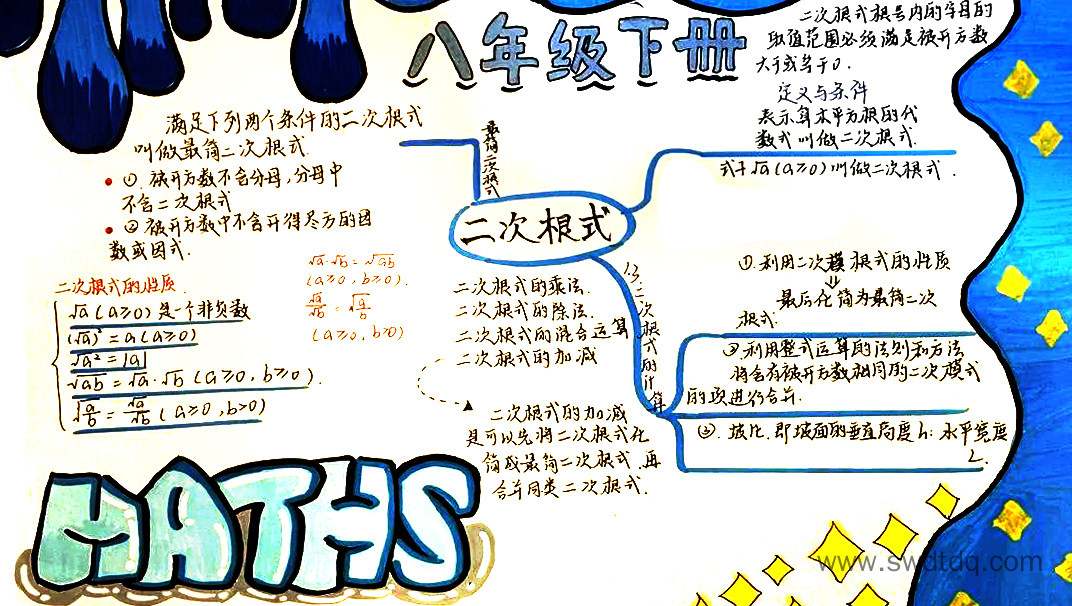 八年级下册
二次根式根号内的字母的
取值范围必须满足被开方数
大于或等于0.
定义与条件
表示算术平方根的代
数式叫做二次根式.
式子√a(a≥0)叫做二次根式.
满足下列两个条件的二次根式
叫做最简二次根式.
①.被开方数不含分母,分母中
不含二次根式
②被开方数中不含开得尽方的因
数或因式.
最简二次根式
二次根式
二次根式的性质.
√a(a≥0)是一个非负数
(√a)²=a(a≥0)
√a²=|a|
√ab=√a·√b(a≥0,b≥0).
√a/b=√a/√b(a≥0,b>0)
√a·√b=√ab
(a≥0,b≥0).
√a/√b=√a/b
(a≥0,b>0)
二次根式的乘法.
二次根式的除法.
二次根式的混合运算
二次根式的加减
二次根式的加减
是可以先将二次根式化
简成最简二次根式.再
合并同类二次根式.
二次根式的计算
①.利用二次根式的性质
⇓
最后化简为最简二次
根式.
②利用整式运算的法则和方法
将含有被开方数相同的二次根式
的项进行合并.
③.坡比.即坡面的垂直高度h:水平宽度
L.
MATHS
www.swdtdq.com